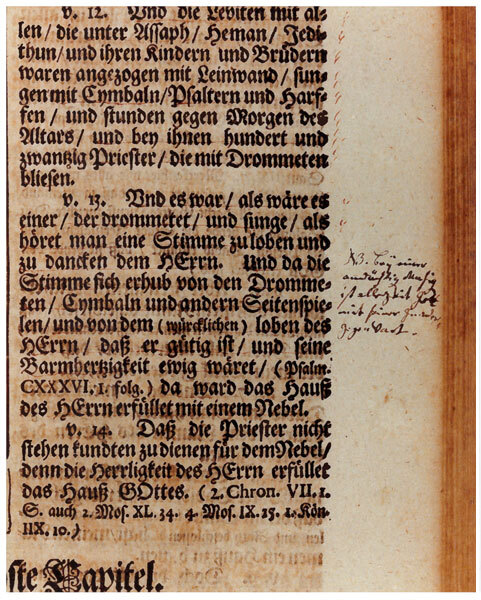 v. 12. Und die Leviten mit al-
len / die unter Assaph / Heman / Jedi-
thun / und ihren Kindern und Brüdern
waren angezogen mit Leinwand / sun-
gen mit Cymbaln / Psaltern und Harf-
fen / und stunden gegen Morgen des
Altars / und bey ihnen hundert und
zwantzig Priester / die mit Drommeten
bliesen.
v. 13. Und es war / als wäre es
einer / der drommetet / und sunge / als
höret man eine Stimme zu loben und
zu dancken dem HErrn. Und da die
Stimme sich erhub von den Dromme-
ten / Cymbaln und andern Seitenspie-
len / und von dem (würcklichen) loben des
HErrn / daß er gütig ist / und seine
Barmhertzigkeit ewig wäret / (Psalm.
CXXXVI. 1. folg.) da ward das Hauß
des HErrn erfüllet mit einem Nebel.
v. 14. Daß die Priester nicht
stehen kundten zu dienen für dem Nebel /
denn die Herrligkeit des HErrn erfüllet
das Hauß GOttes. (2. Chron. VII. 1.
S. auch 2. Mos. XL. 34. 4. Mos. IX. 15. 1. Kön.
IIX. 10.)
ste Capitel.
NB. Bey einer
andächtig Musiq
ist allezeit Gott
mit seiner Gnaden
Gegenwart.